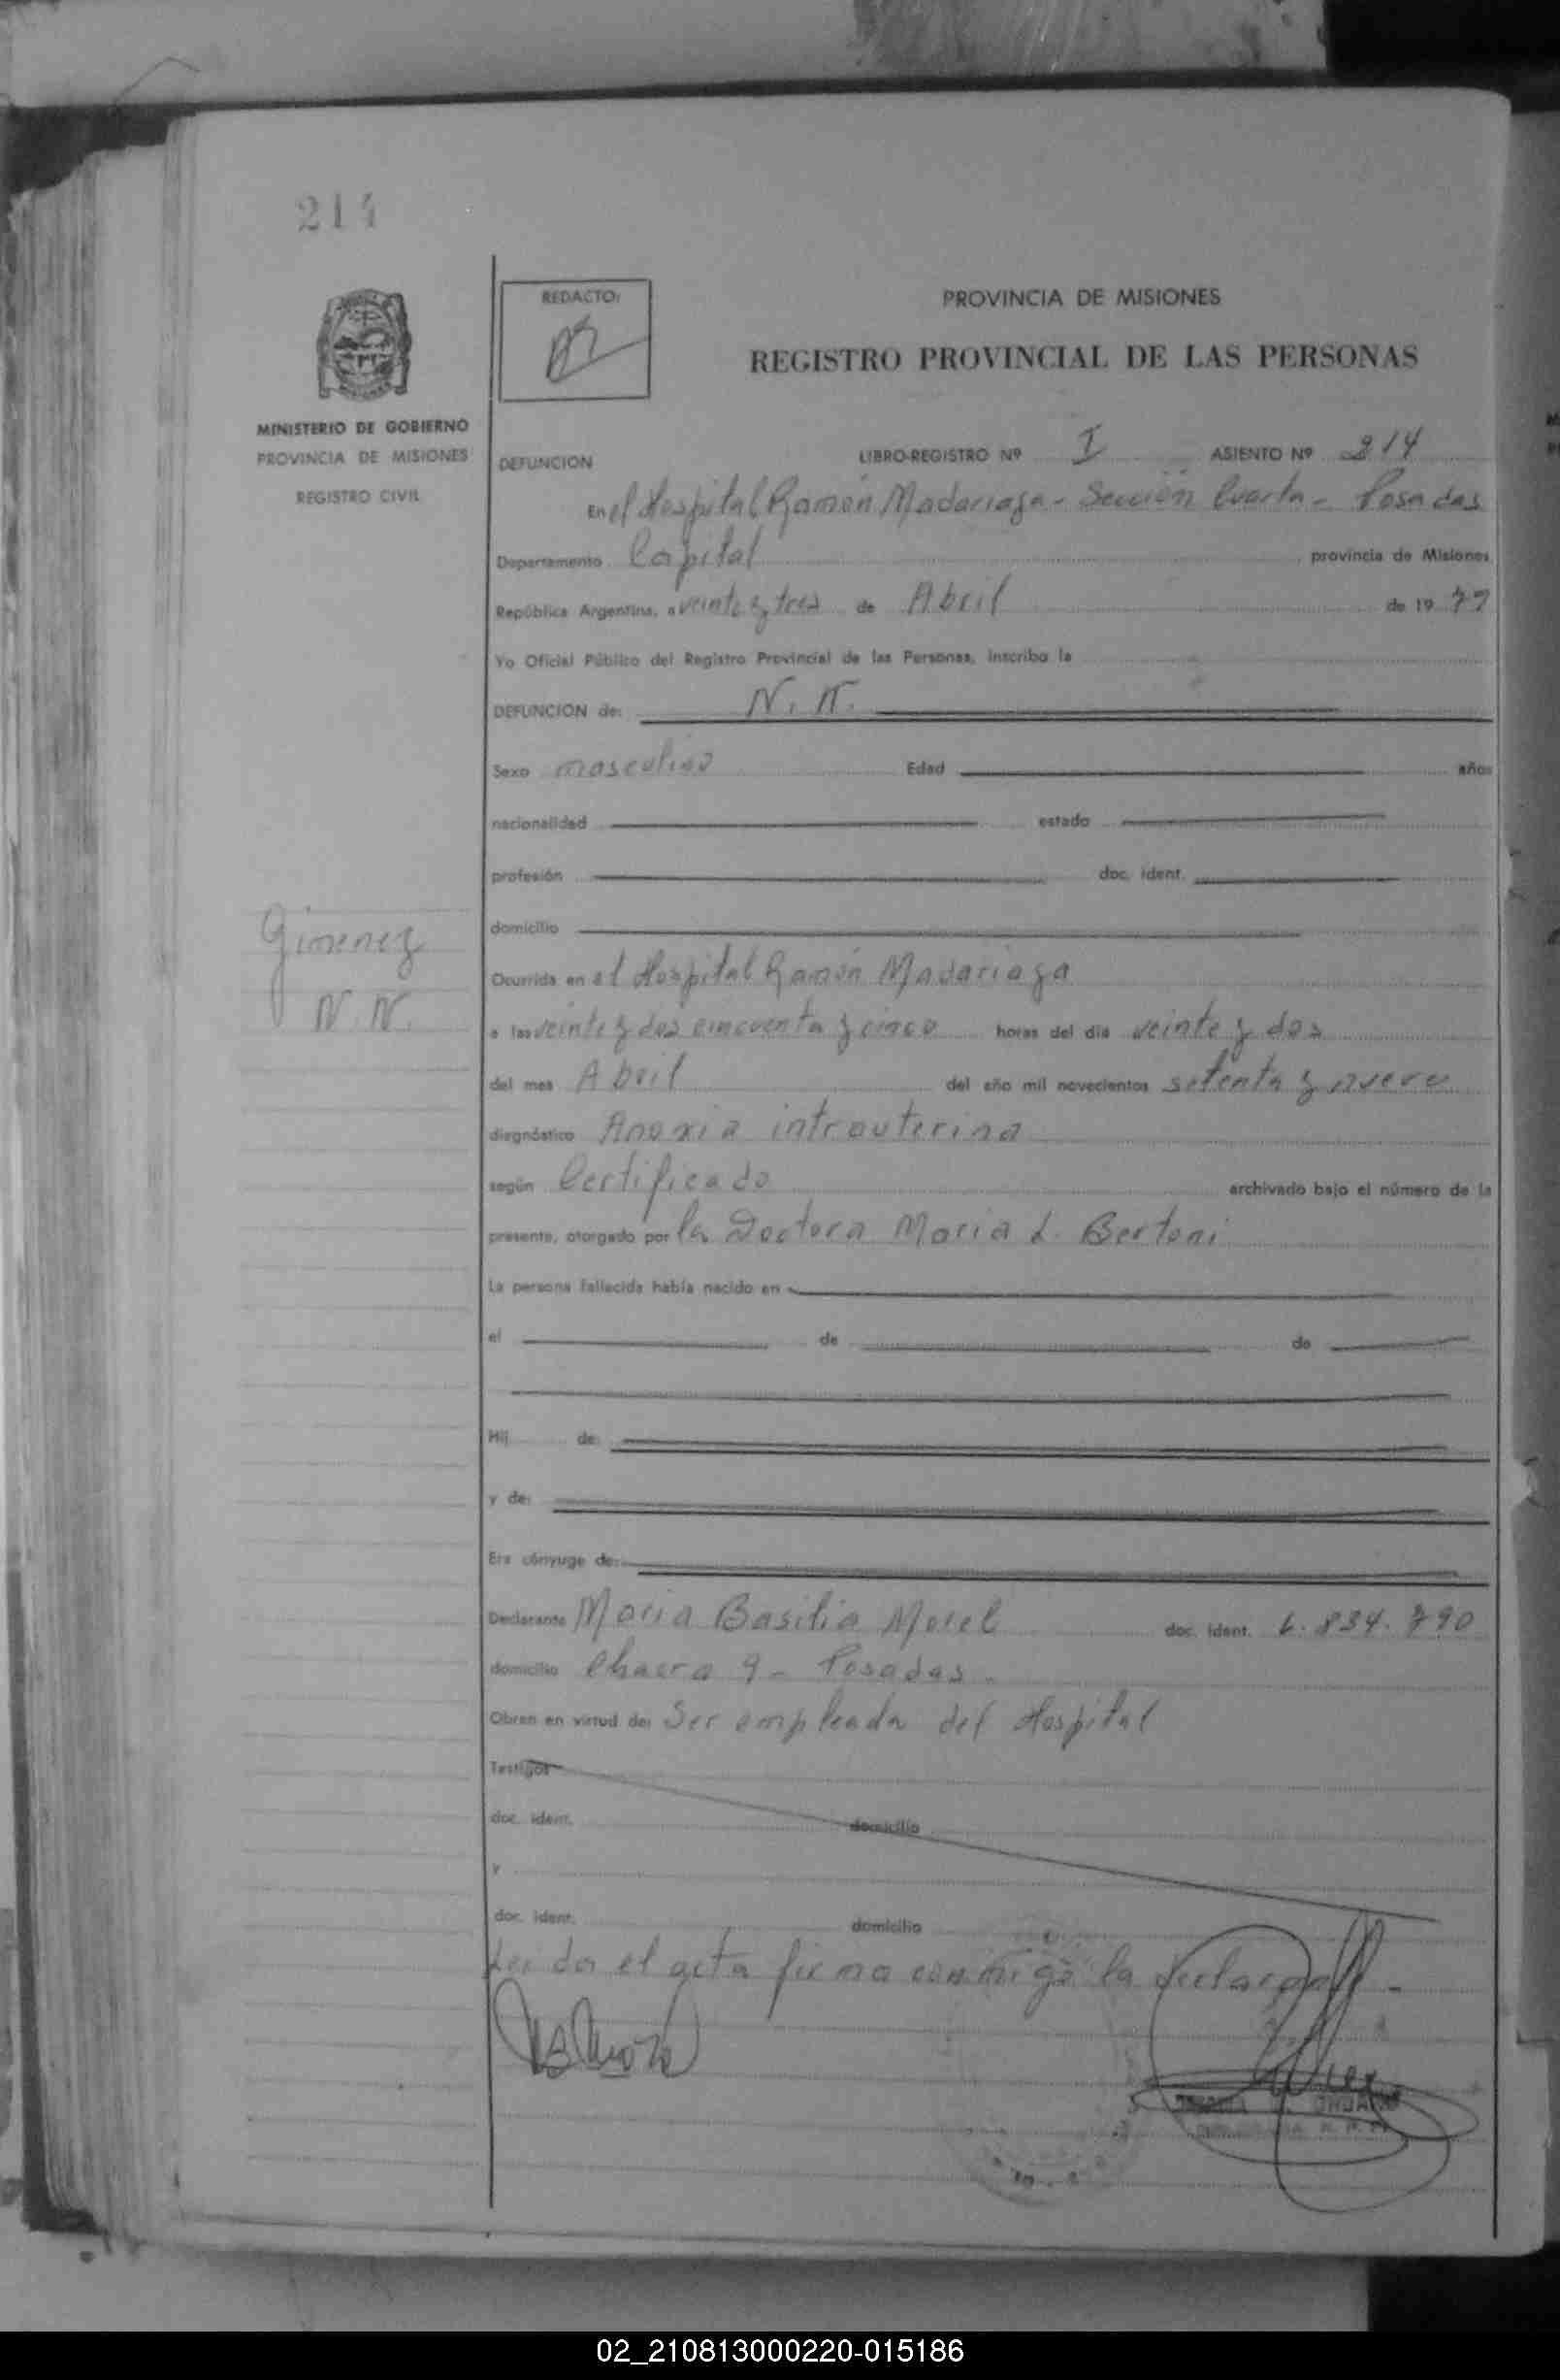 214
REDACTO:
PROVINCIA DE MISIONES
REGISTRO PROVINCIAL DE LAS PERSONAS
MINISTERIO DE GOBIERNO
PROVINCIA DE MISIONES
REGISTRO CIVIL
DEFUNCION LIBRO-REGISTRO Nº I ASIENTO Nº 214
En el Hospital Ramón Madariaga - Sección Cuarta - Posadas
Departamento Capital provincia de Misiones
República Argentina, a veinte y tres de Abril de 19 79
Yo Oficial Público del Registro Provincial de las Personas, inscribo la
DEFUNCION de: N. N.
Sexo masculino Edad años
nacionalidad estado
profesión doc. ident.
domicilio
Gimenez
N. N.
Ocurrida en el Hospital Ramón Madariaga
a las veinte y dos cincuenta y cinco horas del día veinte y dos
del mes Abril del año mil novecientos setenta y nueve
diagnóstico Anoxia intrauterina
según Certificado archivado bajo el número de la
presente, otorgado por la Doctora Maria L. Bertoni
La persona fallecida había nacido en
el de de
Hij de:
y de:
Era cónyuge de:
Declarante Maria Basilia Morel doc. ident. 6.834.790
domicilio Chacra 9 - Posadas -
Obran en virtud de: Ser empleada del Hospital
Testigos
doc. ident. domicilio
y
doc. ident. domicilio
Leida el acta firma conmigo la declarante -
02_210813000220-015186